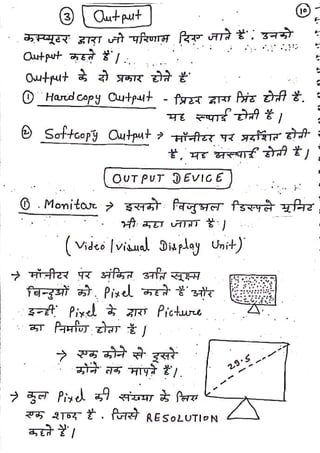 10
③ Output
कम्प्यूटर द्वारा जो परिणाम दिए जाते हैं, उनको
Output कहते हैं।
Output के दो प्रकार होते हैं
① Hardcopy Output - प्रिंटर द्वारा प्रिंट होती है.
यह स्थाई होती है।
② Softcopy Output → मॉनीटर पर प्रदर्शित होती
है, यह अस्थाई होती है।
OUTPUT DEVICE
① Monitar → इसको विजुअल डिस्प्ले यूनिट
भी कहा जाता है।
(Video/Visual Display Unit)
→ मॉनीटर पर अंकित अति सूक्ष्म
बिन्दुओं को Pixel कहते हैं और
इन्हीं Pixel के द्वारा Picture
का निर्माण होता है।
→ एक कोने से दूसरे
कोने तक मापते हैं।
29.5
→ कुल Pixel की संख्या के लिए
एक शब्द है. जिसे RESOLUTION
कहते हैं।